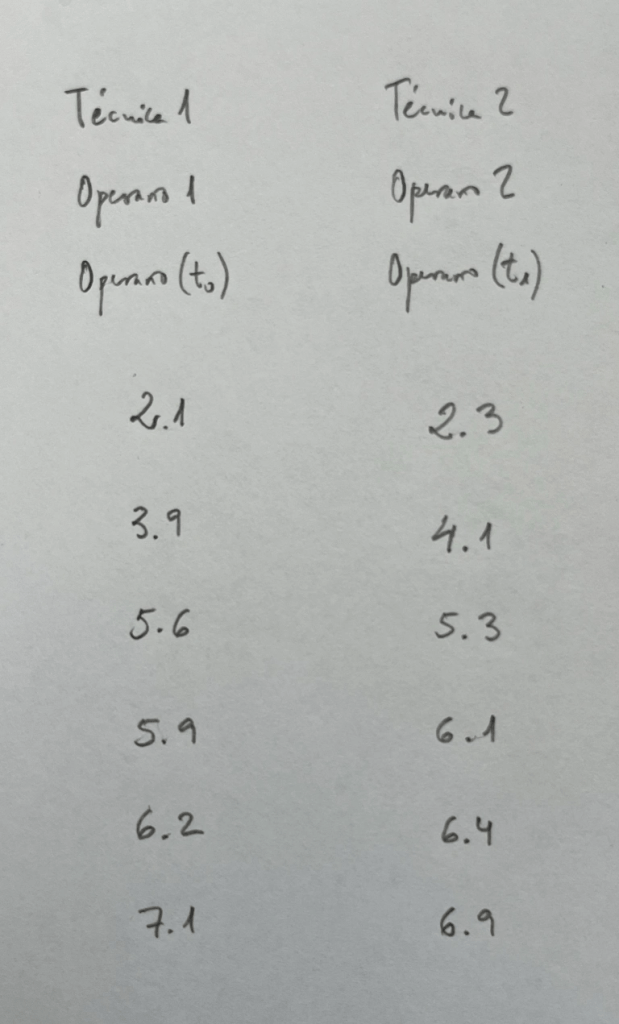 Técnica 1 Técnica 2
Operario 1 Operario 2
Operario (t₀) Operario (t₁)
2.1 2.3
3.9 4.1
5.6 5.3
5.9 6.1
6.2 6.4
7.1 6.9